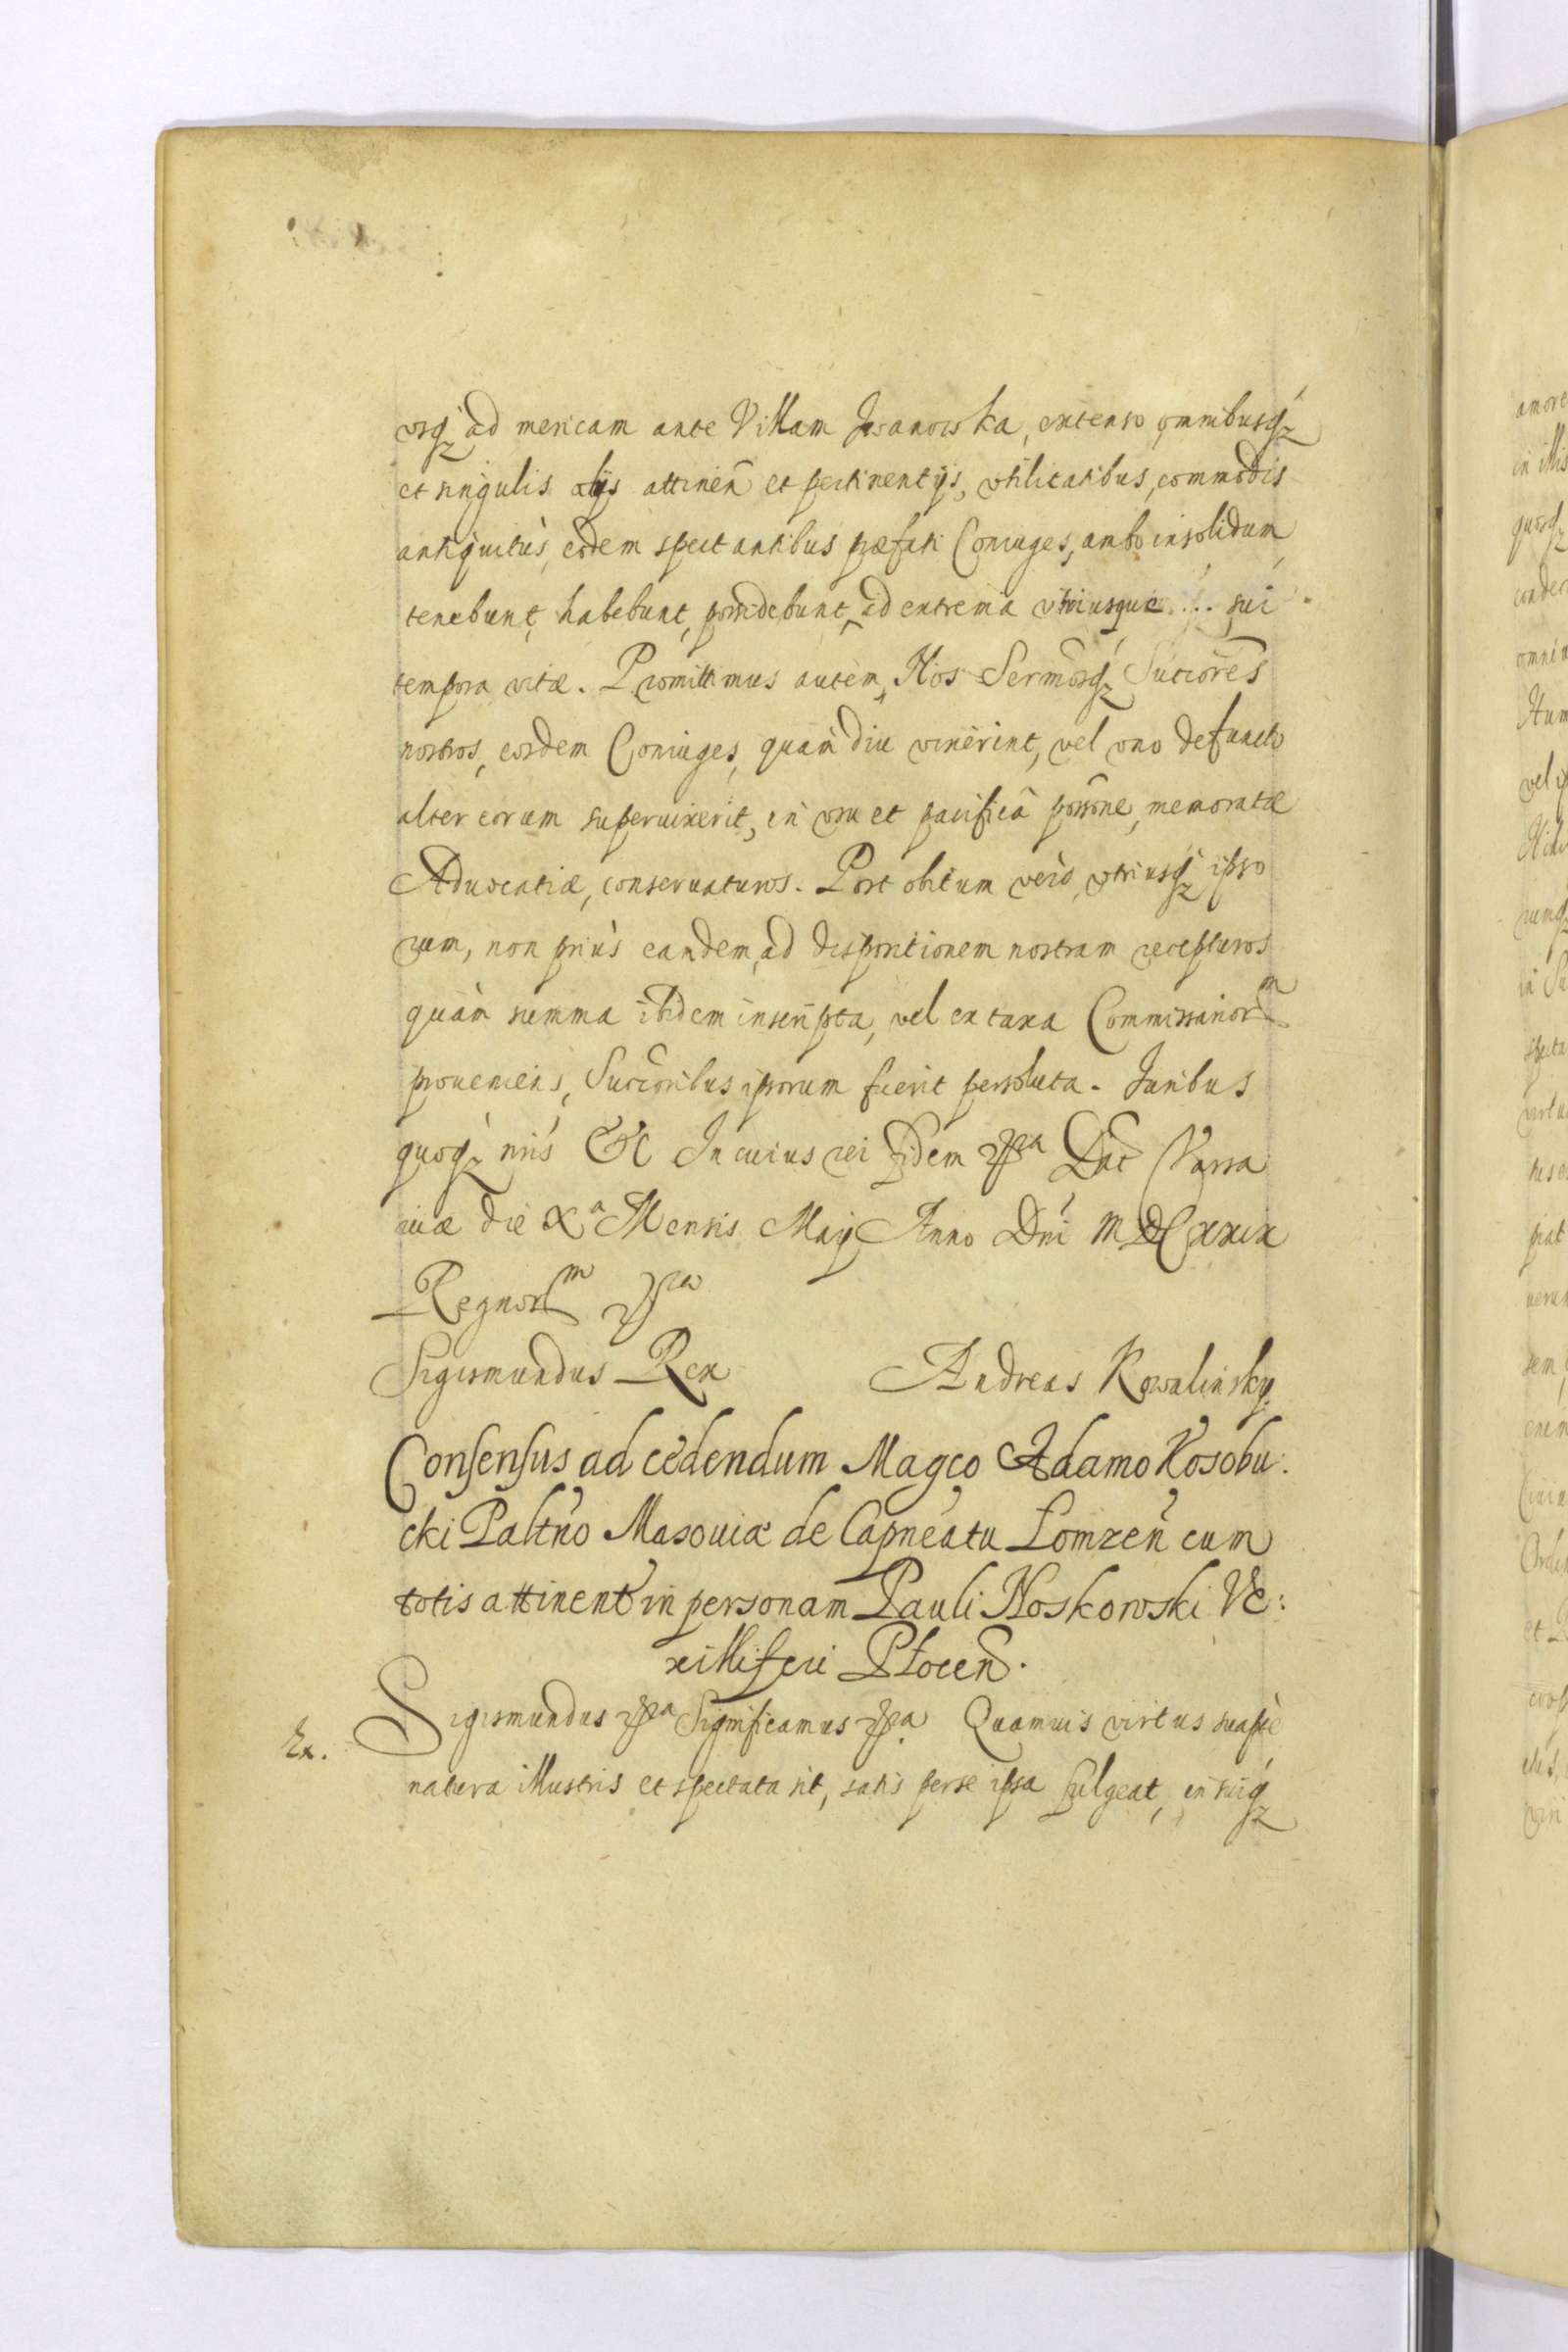 vsq ad mericam ante Villam Jwanowska, extenso omnibusq
et singulis alijs attineñ et pertinentijs, vtilitatibus, commodis
antiquitùs, eòdem spectantibus præfati Coniuges, ambo insolidum
tenebunt, habebunt, possidebunt, ad extrema vtriusque .... sui
tempora vitæ. Promittimus autem, Nos Sermosq Succores
nostros, eosdem Coniuges, quàm diu vixerint, vel vno defuncto
alter eorum superuixerit, in vsu et pacificâ possne, memoratæ
Aduocatiæ, conseruaturos. Post obitum verò, vtriusq ipso
rum, non priùs eandem, ad dispositionem nostram recepturos
quàm summa ibidem inscripta, vel ex taxa Commissarior͞m
proueniens, Succoribus ipsorum fuerit persoluta. Juribus
quoq nris &c In cuius rei fidem &ra Dat Varsa
uiæ die Xa Mensis Maij Anno Dni MDCXXIX
Regnorm &ra
Sigismundus Rex Andreas Kowalinsky
Consensus ad cedendum Magco Adamo Kosobu:
cki Paltno Masouiæ de Capneatu Lomzeñ cum
totis attinent in personam Pauli Noskowski Ve:
xilliferi Ploceñ.
Ex. Sigismundus &ra Significamus &ra. Quamuis virtus suapte
natura illustris et spectata sit, satis perse ipsa fulgeat, in suiq